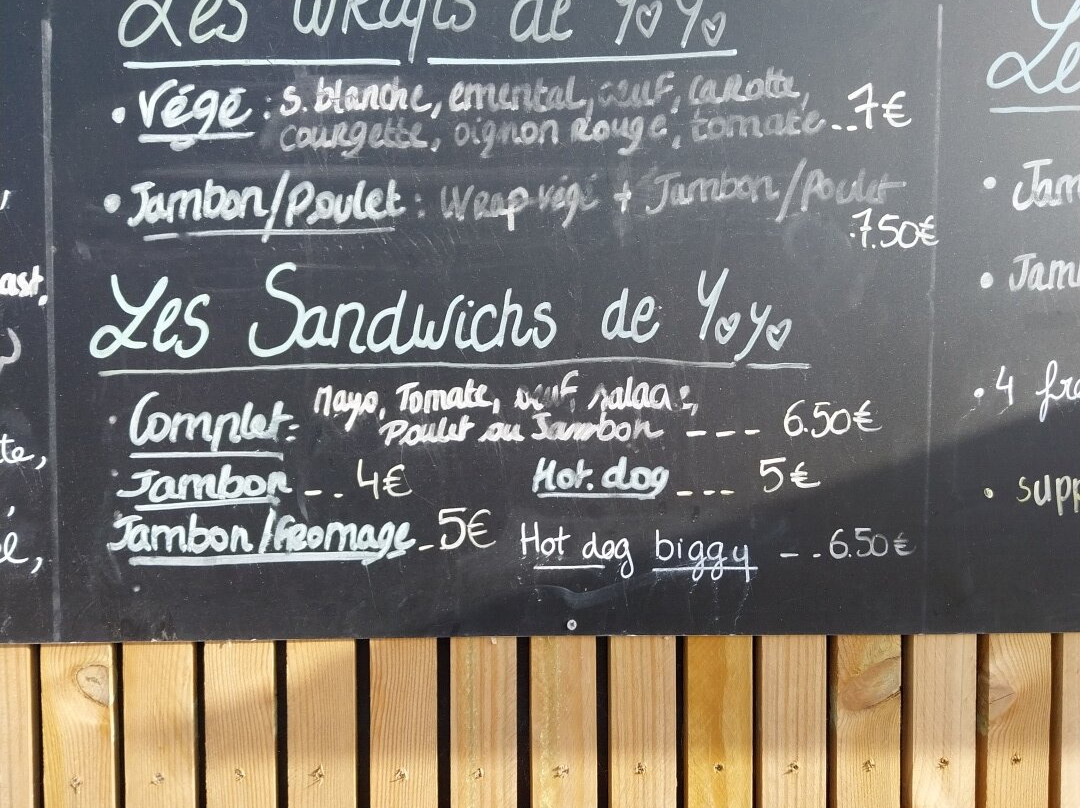 Les Wraps de YoYo
• Végé : s. blanche, emental, œuf, carotte,
courgette, oignon rouge, tomate..7€
• Jambon/Poulet : Wrap végé + Jambon/Poulet
.7.50€
Les Sandwichs de Yoyo
• Complet: Mayo, Tomate, œuf, salade,
Poulet ou Jambon --- 6.50€
Jambon -.. 4€ Hot.dog --- 5€
Jambon/fromage - 5€ Hot dog biggy -..6.50€
ast,
te,
Le
• Jam
• Jam
• 4 fra
• supp